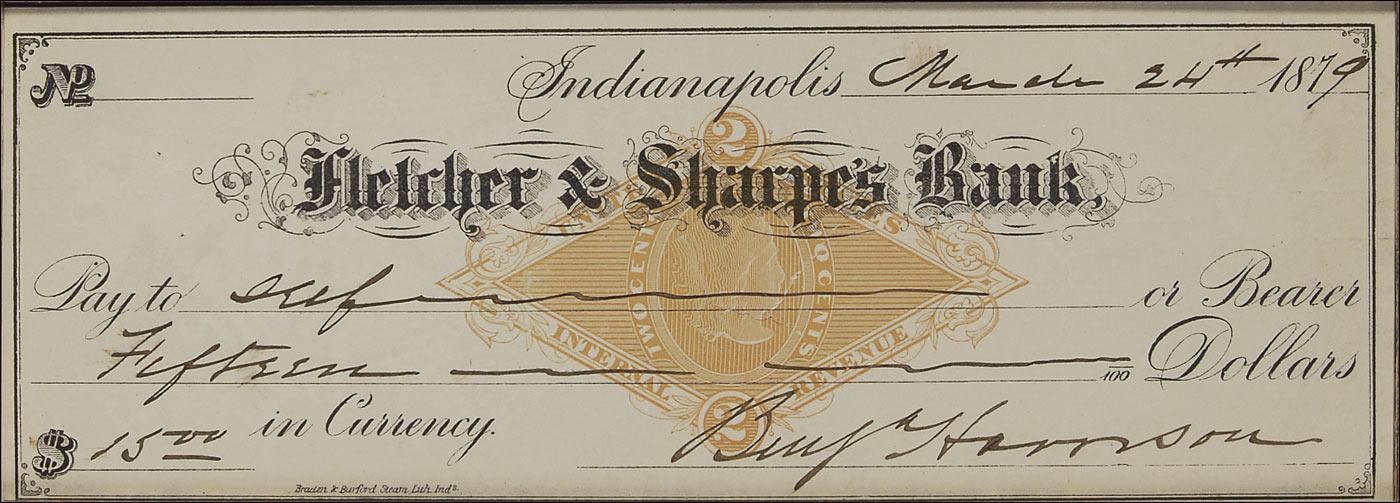 No Indianapolis March 24th 1879
2
Fletcher & Sharpe's Bank,
UNITED STATES
Pay to self or Bearer
TWO CENTS TWO CENTS
INTERNAL REVENUE
Fifteen /100 Dollars
$ 15 00 in Currency.
2
Benja Harrison
Braden & Burford Steam Lith. Inds.